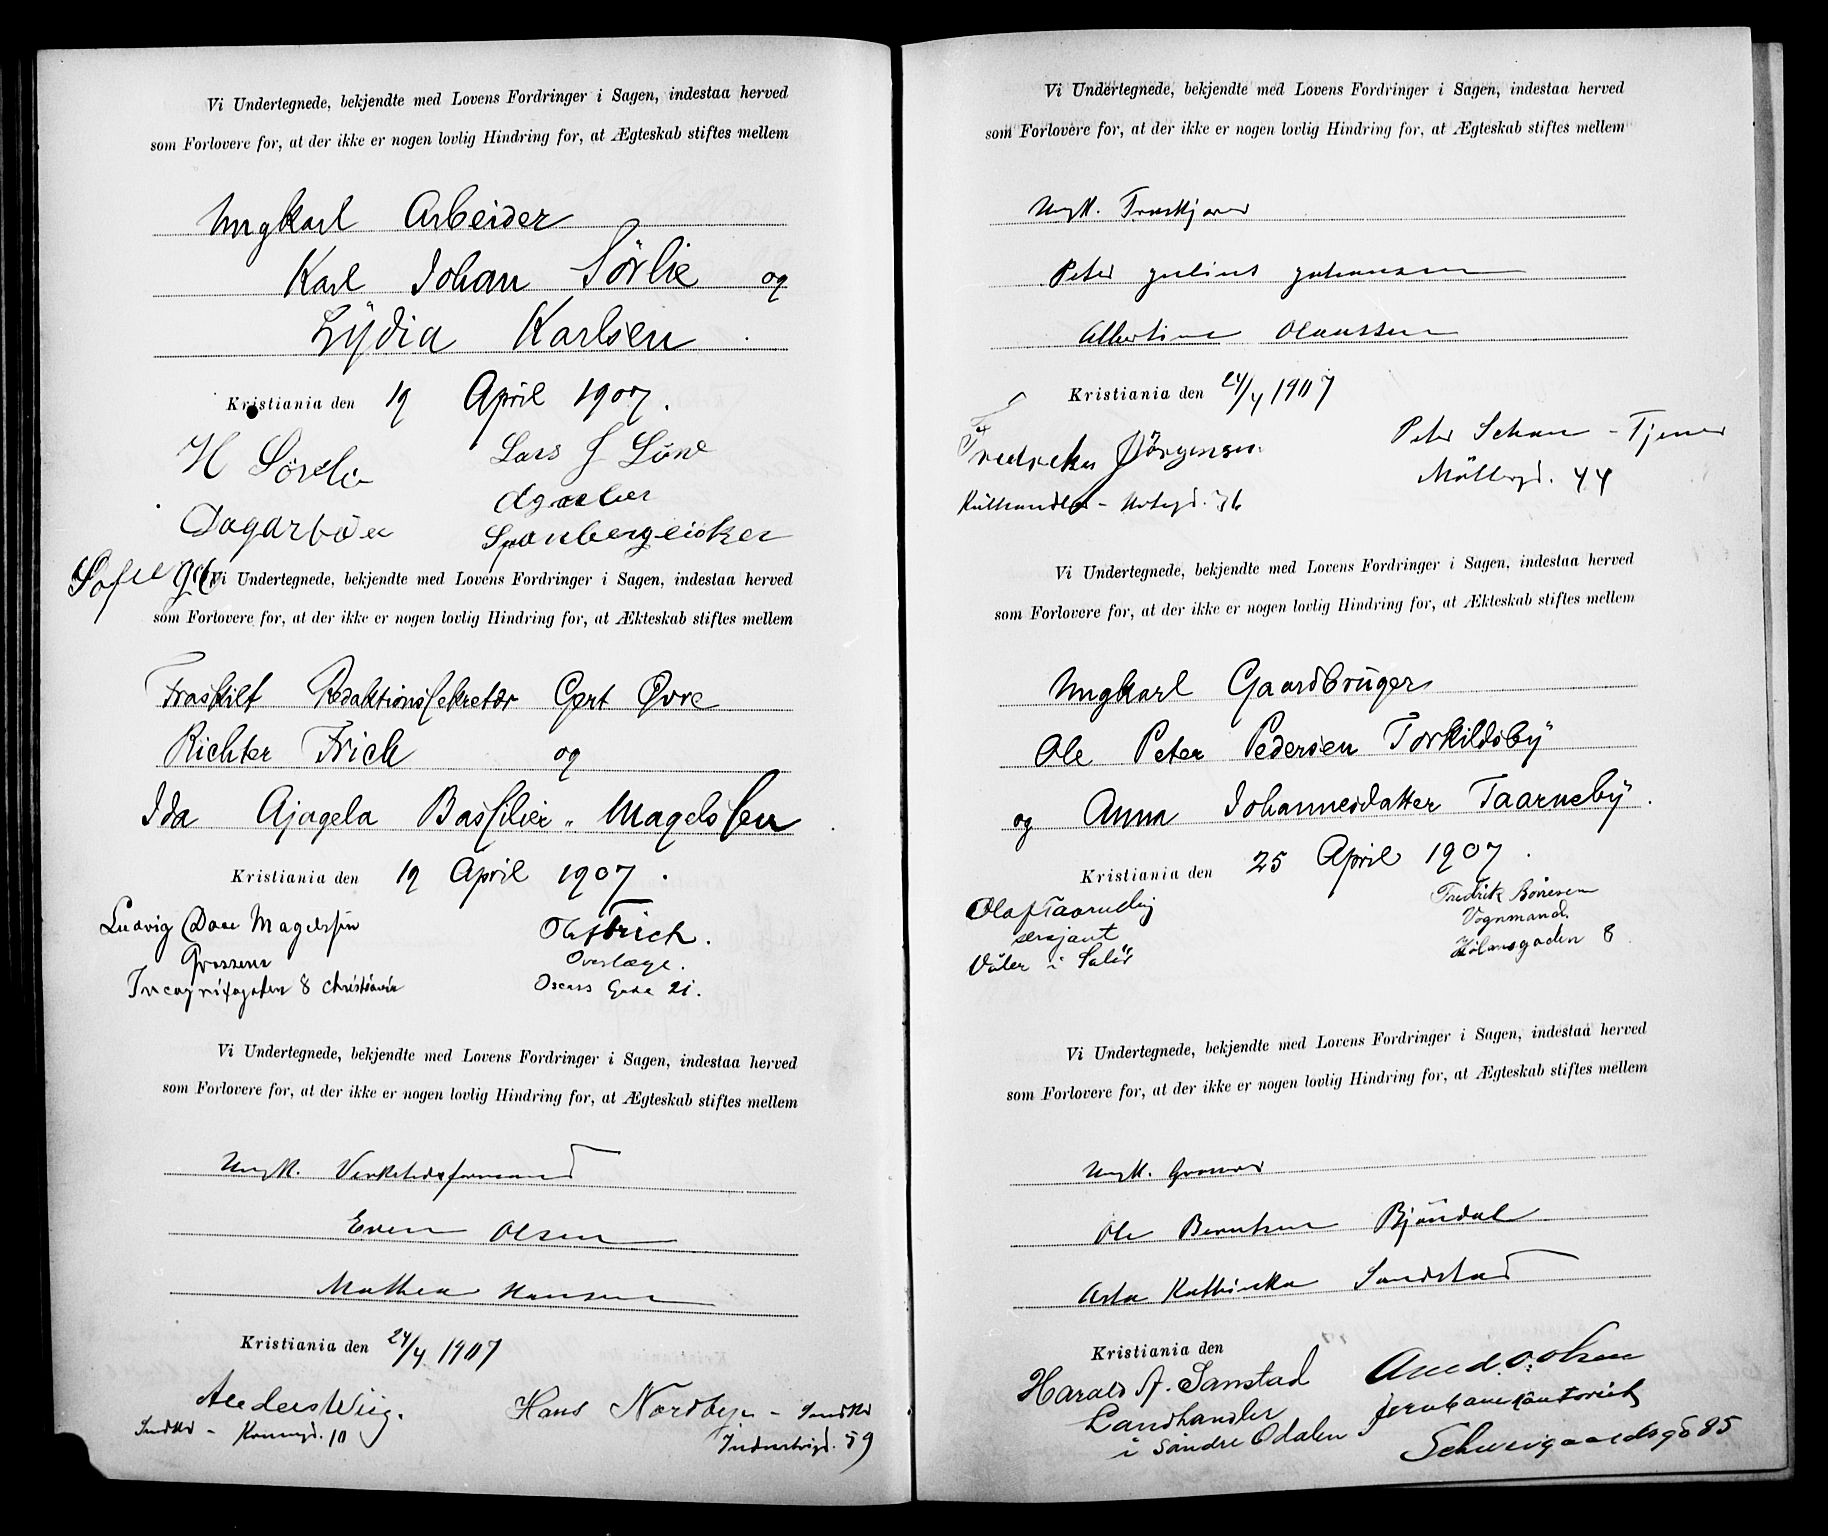 Vi Undertegnede, bekjendte med Lovens Fordringer i Sagen, indestaa herved
som Forlovere for, at der ikke er nogen lovlig Hindring for, at Ægteskab stiftes mellem
Ungkarl Arbeider
Karl Johan Sörlie og
Lÿdia Karlsen .
Kristiania den 19 April 1907.
H Sörlie
Dagarböie
Sofieg
Lars J Lune
Agneber
Spanbergeieker
Vi Undertegnede, bekjendte med Lovens Fordringer i Sagen, indestaa herved
som Forlovere for, at der ikke er nogen lovlig Hindring for, at Ækteskab stiftes mellem
Fraskilt Redaktionssekretær Gert Øvre
Richter Frich og
Ida Ajagela Bassilier - Magelssen .
Kristiania den 19 April 1907.
Ludvig Daae Magelssen
Grosserer
Incognitogaden 8 Christiania
Ole Frich.
Overlæge.
Oscars Gade 21.
Vi Undertegnede, bekjendte med Lovens Fordringer i Sagen, indestaa herved
som Forlovere for, at der ikke er nogen lovlig Hindring for, at Ægteskab stiftes mellem
Ungk. Verkstedsformand
Even Olsen
Mathea Hansen
Kristiania den 24/4 1907
Anders Wiig.
Snedker - Kronungd. 10
Hans Nordbye - Snedker
Industrigd. 59
Vi Undertegnede, bekjendte med Lovens Fordringer i Sagen, indestaa herved
som Forlovere for, at der ikke er nogen lovlig Hindring for, at Ægteskab stiftes mellem
Ungk.
Peter Julius Johansen
Albertine Olaussen
Kristiania den 24/4 1907
Fredrikke Jörgensen
Kulhandler - 36
Peter Schau - Tjener
Möllergd. 44
Vi Undertegnede, bekjendte med Lovens Fordringer i Sagen, indestaa herved
som Forlovere for, at der ikke er nogen lovlig Hindring for, at Ækteskab stiftes mellem
Ungkarl Gaardbruger
Ole Peter Pedersen Torkildsbÿ
og Anna Johannesdatter Taarnebÿ .
Kristiania den 25 April 1907.
Olaf Taarneby
sersjant
Våler i Solör
Fredrik Börresen
Vognmand.
Hölansgaden 8
Vi Undertegnede, bekjendte med Lovens Fordringer i Sagen, indestaa herved
som Forlovere for, at der ikke er nogen lovlig Hindring for, at Ægteskab stiftes mellem
Ungk. Gramer
Ole Berntsen Bjöndal
Asta Kathinka Sandstad
Kristiania den
Harald A. Sanstad
Landhandler
i Söndre Odalen
Amd. O. Olsen
Jernbanekontorist
Schweigaardsgd 85